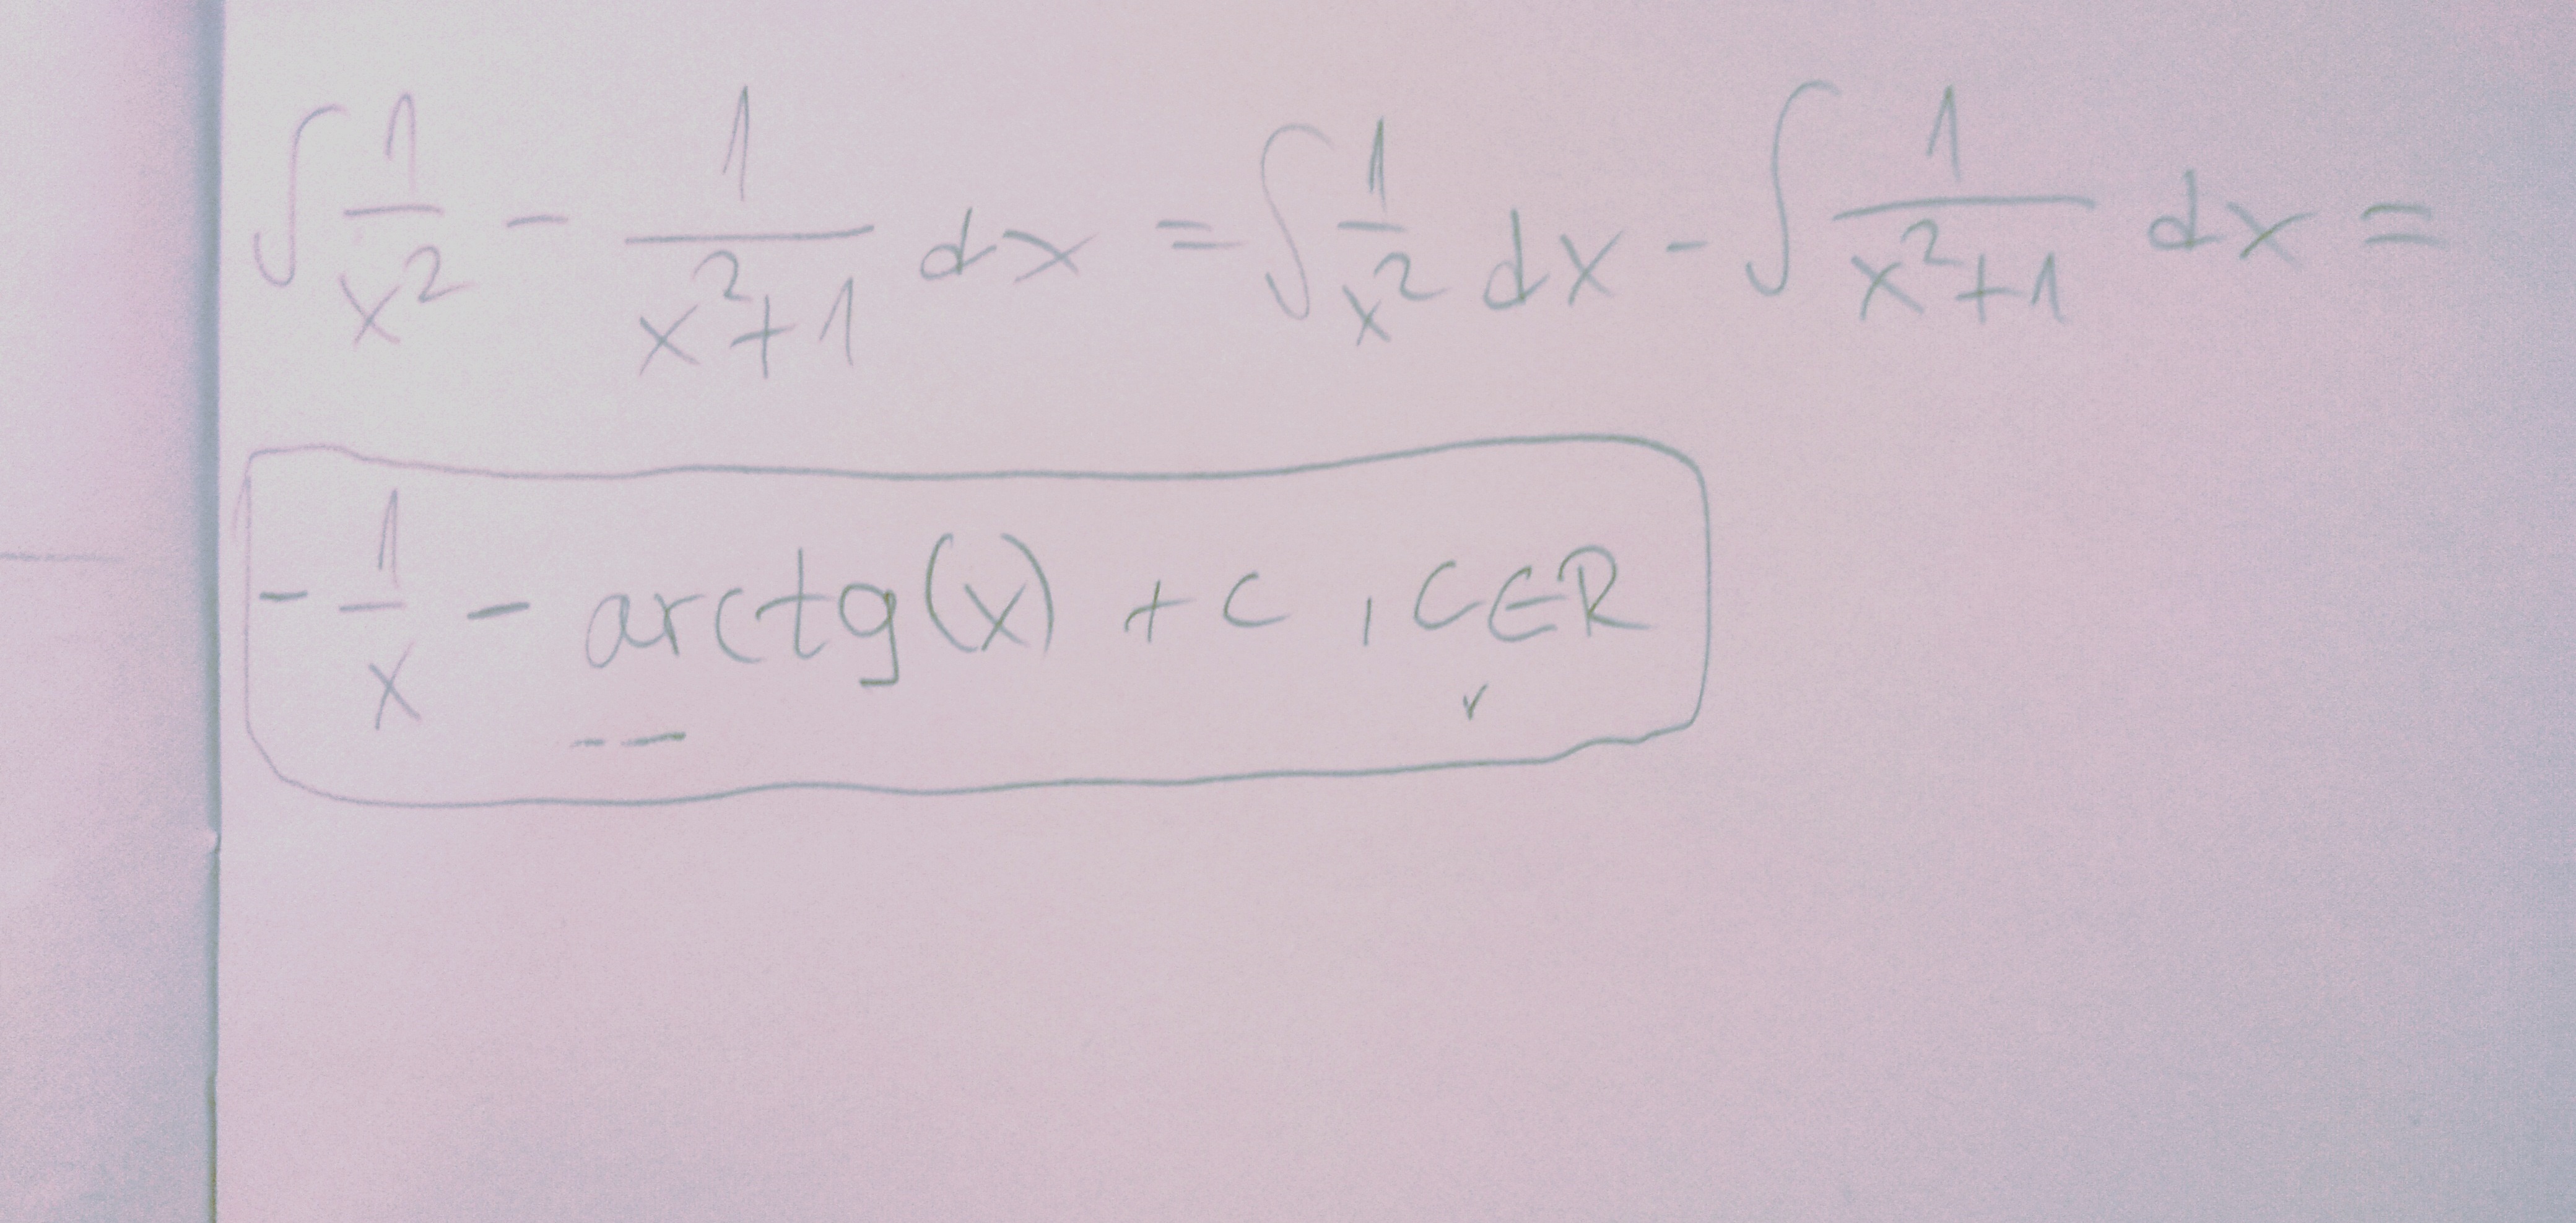 ∫ 1/x² - 1/(x²+1) dx = ∫ 1/x² dx - ∫ 1/(x²+1) dx =
- 1/x - arctg(x) + C , C∈R